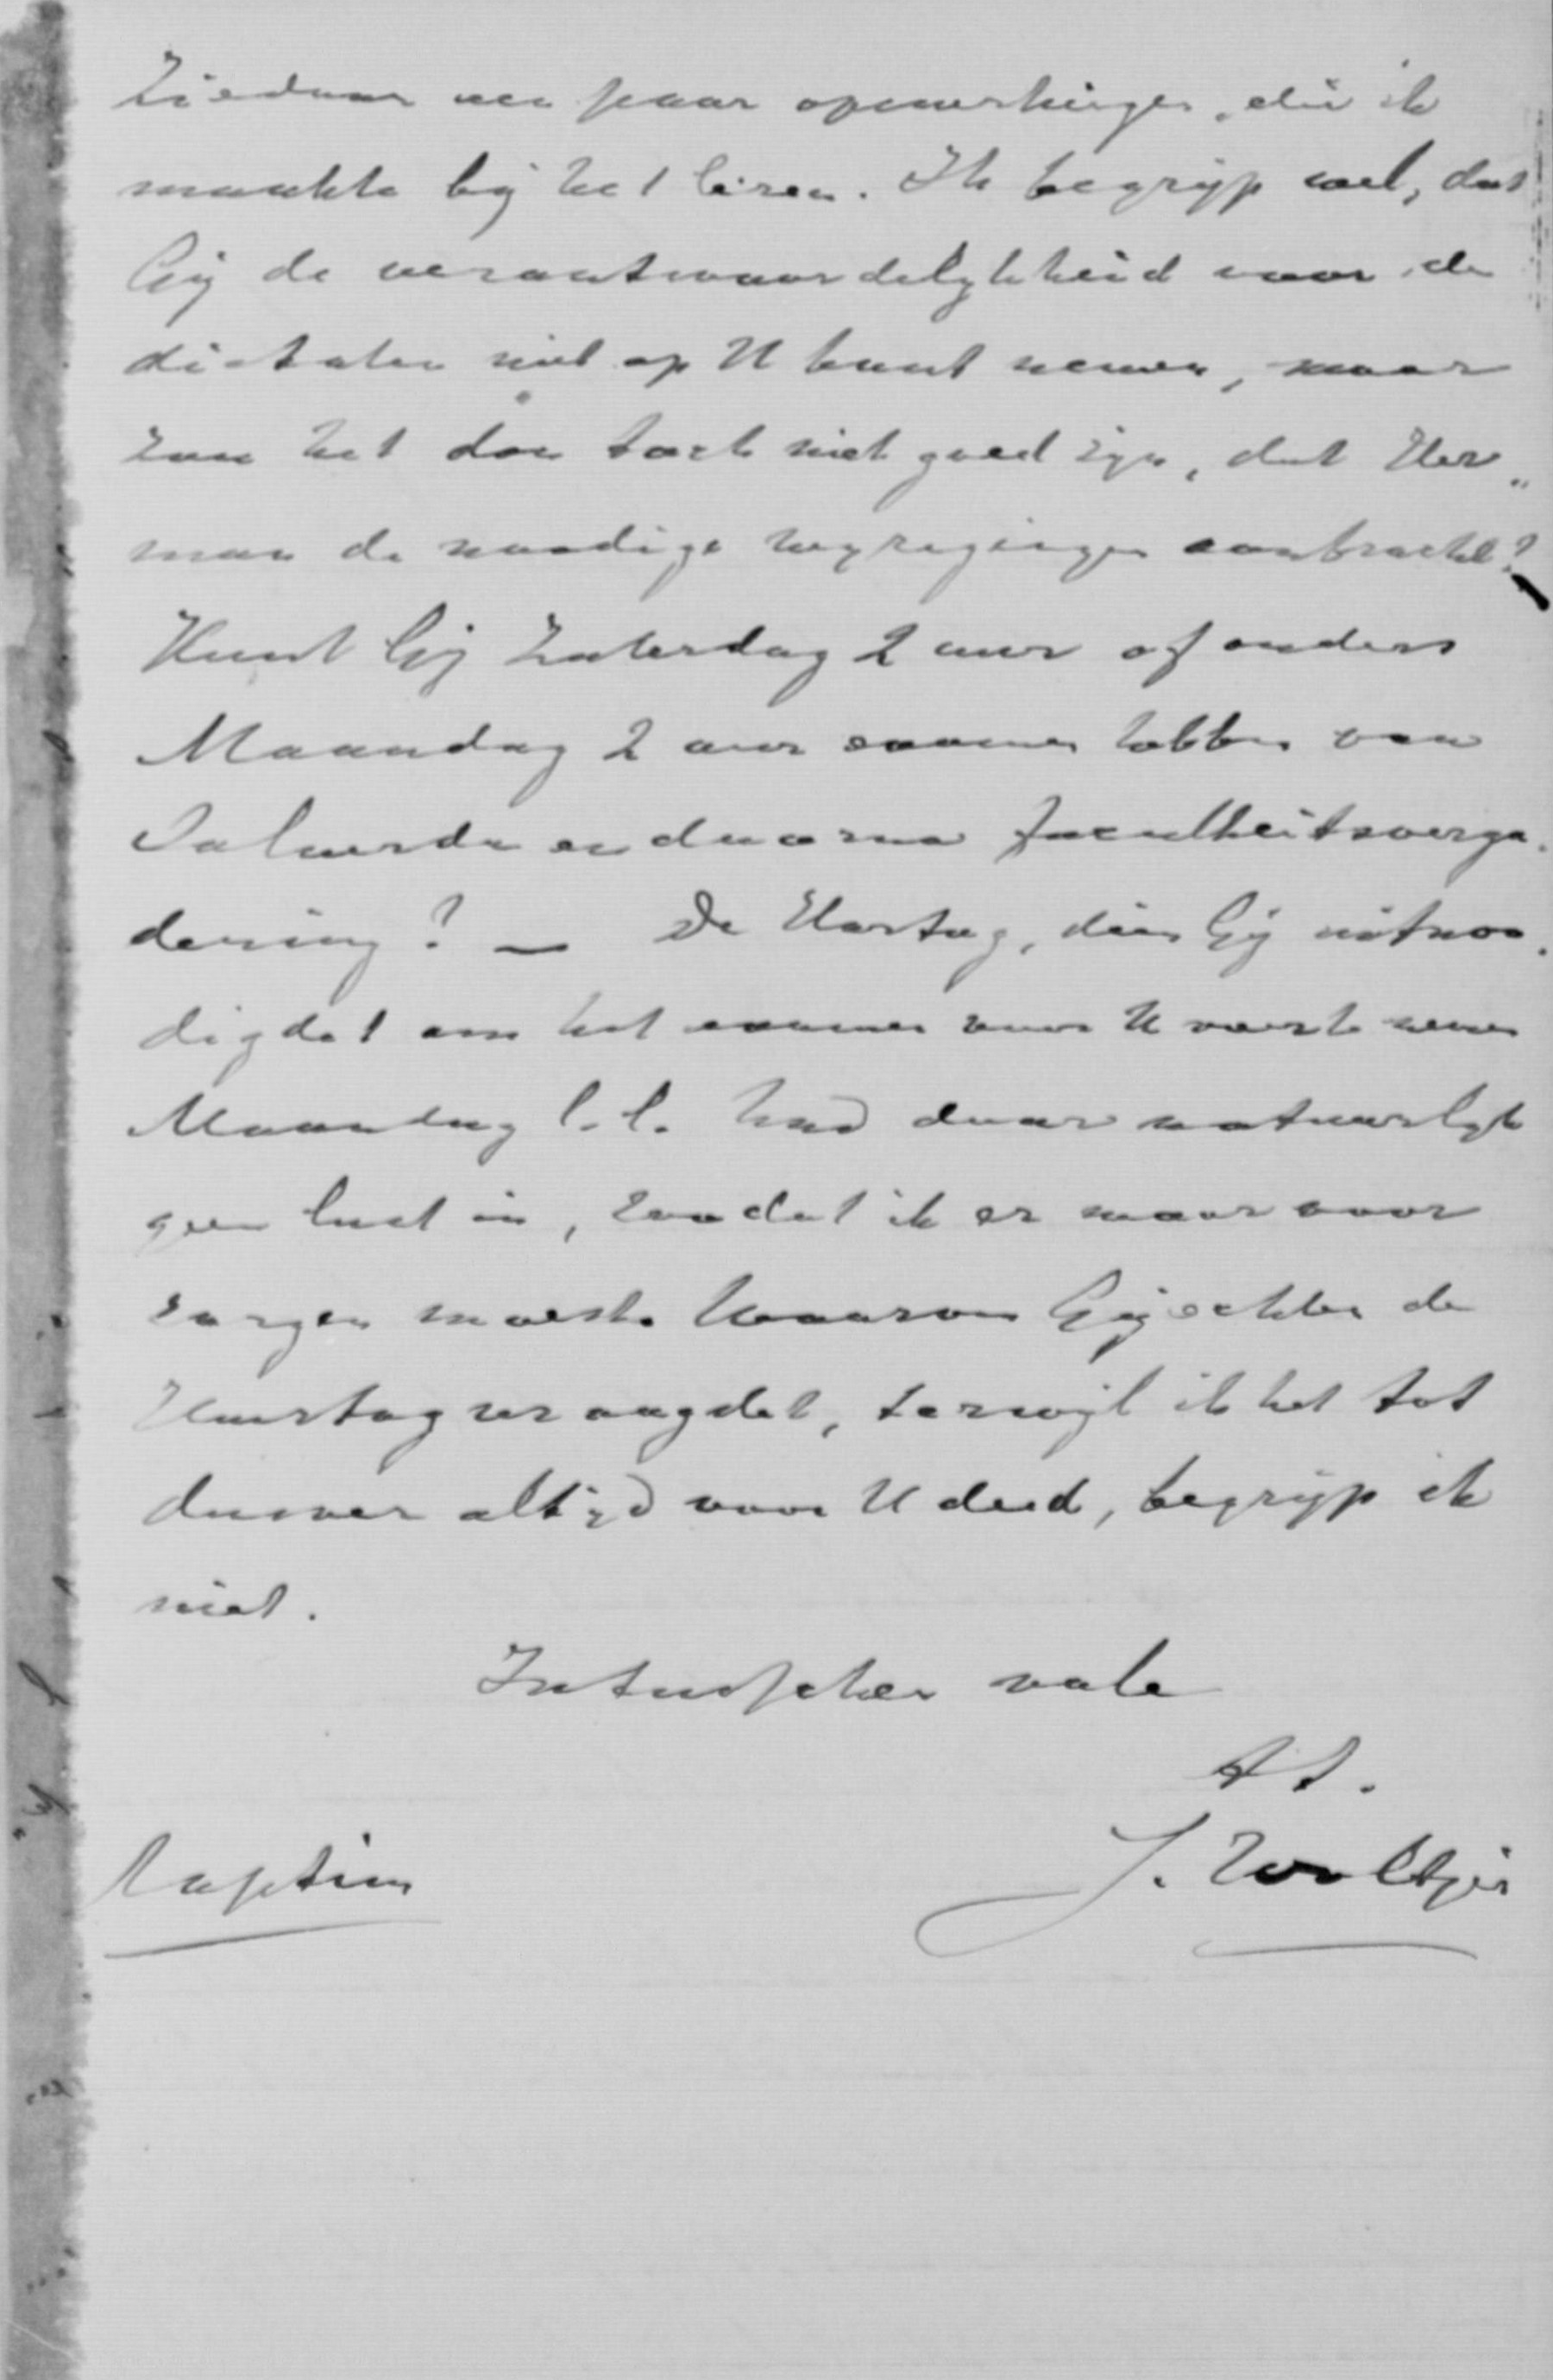 Ziedaar een paar opmerkingen, die ik
maakte bij het lezen. Ik begrijp wel, dat
Gij de verantwoordelijkheid voor de
dictaten niet op U kunt nemen, maar
zou het dan toch niet goed zijn, dat Her„
man de noodige wijzigingen aanbracht?
Kunt Gij Zaterdag 2 uur of anders
Maandag 2 uur examen hebben van
en daarna faculteitsverga„
dering? — De Hartog, dien Gij uitnoo„
digdet om het examen voor U waar te nemen
Maandag l.l. had daar natuurlijk
geen lust in, zoodat ik er maar voor
zorgen moest. Waarom Gij echter de
Hartog vraagdet, terwijl ik het tot
dusver altijd voor U deed, begrijp ik
niet.
Intusschen vale
tt.
J. Woltjer
Raptim